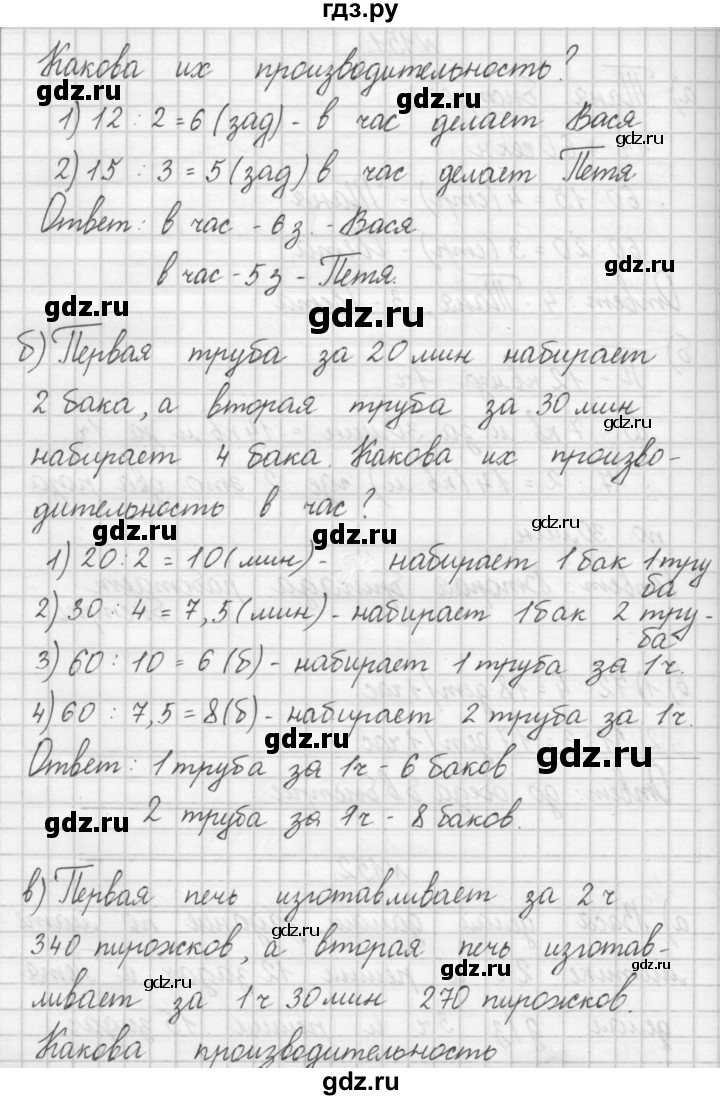 гдз.ру
Какова их производительность?
1) 12 : 2 = 6 (зад) - в час делает Вася
2) 15 : 3 = 5 (зад) в час делает Петя
Ответ: в час - 6 з. - Вася
в час - 5 з - Петя.
б) Первая труба за 20 мин набирает
2 бака, а вторая труба за 30 мин
набирает 4 бака. Какова их произво-
дительность в час?
1) 20 : 2 = 10 (мин) - набирает 1 бак 1 тру
ба
2) 30 : 4 = 7,5 (мин) - набирает 1 бак 2 тру-
ба
3) 60 : 10 = 6 (б) - набирает 1 труба за 1 ч.
4) 60 : 7,5 = 8 (б) - набирает 2 труба за 1 ч.
Ответ: 1 труба за 1 ч - 6 баков
2 труба за 1 ч - 8 баков.
в) Первая печь изготавливает за 2 ч
340 пирожков, а вторая печь изготав-
ливает за 1 ч 30 мин 270 пирожков.
Какова производительность
gdz.ru